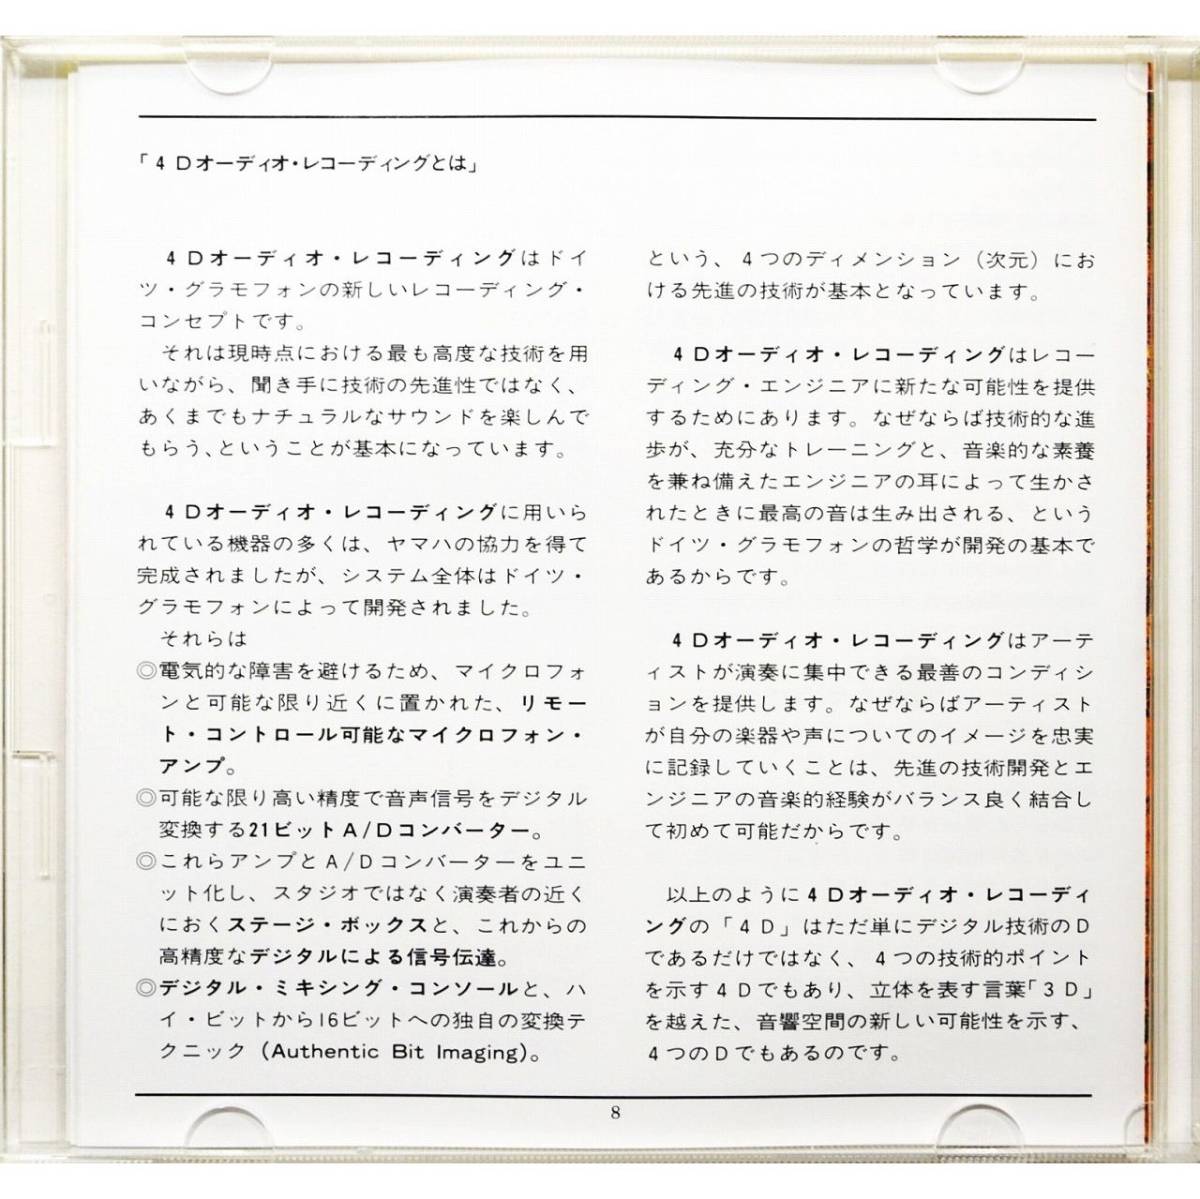 「4Dオーディオ・レコーディングとは」
4Dオーディオ・レコーディングはドイ
ツ・グラモフォンの新しいレコーディング・
コンセプトです。
それは現時点における最も高度な技術を用
いながら、聞き手に技術の先進性ではなく、
あくまでもナチュラルなサウンドを楽しんで
もらう、ということが基本になっています。
4Dオーディオ・レコーディングに用いら
れている機器の多くは、ヤマハの協力を得て
完成されましたが、システム全体はドイツ・
グラモフォンによって開発されました。
それらは
◎電気的な障害を避けるため、マイクロフォ
ンと可能な限り近くに置かれた、リモー
ト・コントロール可能なマイクロフォン・
アンプ。
◎可能な限り高い精度で音声信号をデジタル
変換する21ビットA/Dコンバーター。
◎これらアンプとA/Dコンバーターをユニ
ット化し、スタジオではなく演奏者の近く
におくステージ・ボックスと、これからの
高精度なデジタルによる信号伝達。
◎デジタル・ミキシング・コンソールと、ハ
イ・ビットから16ビットへの独自の変換テ
クニック (Authentic Bit Imaging)。
という、4つのディメンション（次元）にお
ける先進の技術が基本となっています。
4Dオーディオ・レコーディングはレコー
ディング・エンジニアに新たな可能性を提供
するためにあります。なぜならば技術的な進
歩が、充分なトレーニングと、音楽的な素養
を兼ね備えたエンジニアの耳によって生かさ
れたときに最高の音は生み出される、という
ドイツ・グラモフォンの哲学が開発の基本で
あるからです。
4Dオーディオ・レコーディングはアーテ
ィストが演奏に集中できる最善のコンディシ
ョンを提供します。なぜならばアーティスト
が自分の楽器や声についてのイメージを忠実
に記録していくことは、先進の技術開発とエ
ンジニアの音楽的経験がバランス良く結合し
て初めて可能だからです。
以上のように4Dオーディオ・レコーディ
ングの「4D」はただ単にデジタル技術のD
であるだけではなく、4つの技術的ポイント
を示す4Dでもあり、立体を表す言葉「3D」
を越えた、音響空間の新しい可能性を示す、
4つのDでもあるのです。
8